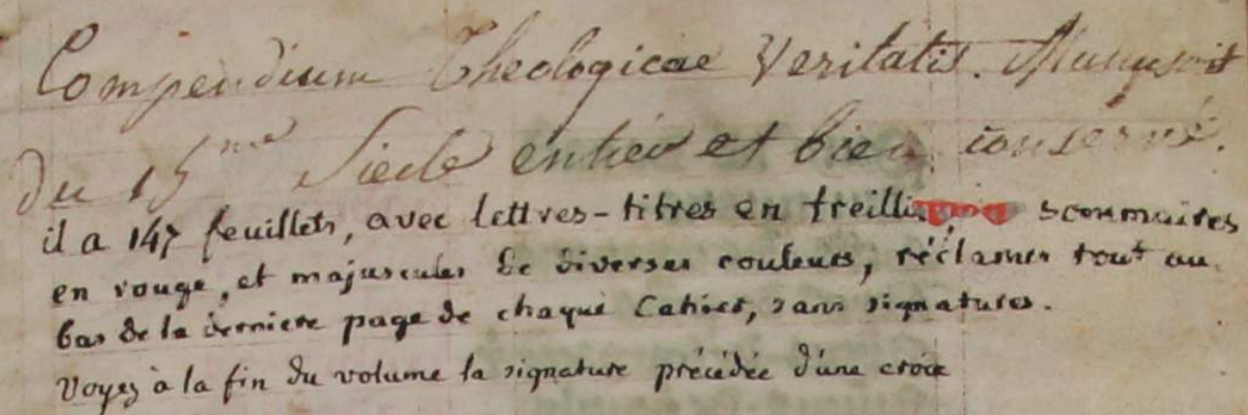 Compendium Theologicae Veritatis. Manuscrit
du 15me Siecle entiér et bien conservé.
il a 147 feuillets, avec lettres-titres en sommaires
en rouge, et majuscules de diverses couleurs, réclames tout au
bas de la derniere page de chaque Cahier, sans signatures.
Voyez à la fin du volume la signature précédée d'une croix